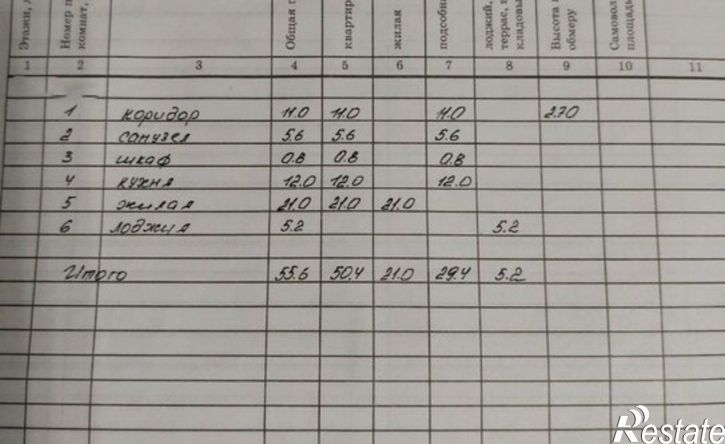 Этажи, л
Номер п
комнат,
Общая п
квартир
жилая
подсобн
лоджий,
террас,
кладовы
Высота
обмеру
Самовол
площадь
1 2 3 4 5 6 7 8 9 10 11
1 коридор 11.0 11.0 11.0 2.70
2 санузел 5.6 5.6 5.6
3 шкаф 0.8 0.8 0.8
4 кухня 12.0 12.0 12.0
5 жилая 21.0 21.0 21.0
6 лоджия 5.2 5.2
Итого 55.6 50.4 21.0 29.4 5.2
Restate